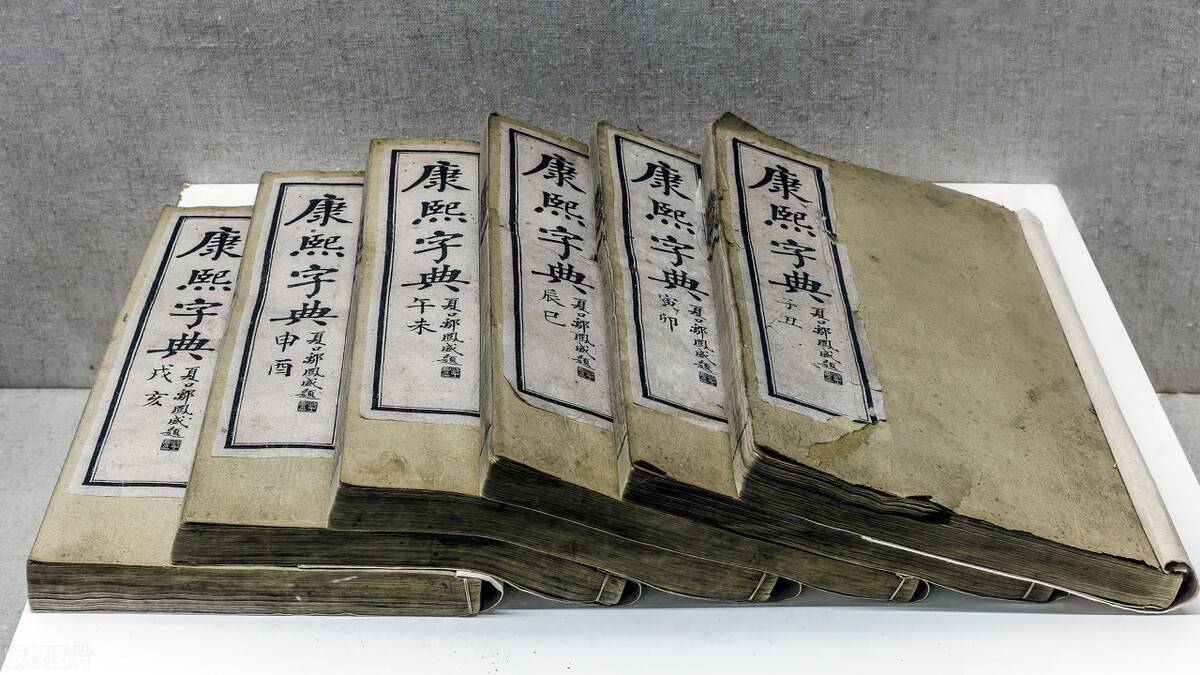 康熙字典
戌亥
夏口鄒鳳題
康熙字典
申酉
夏口鄒鳳題
康熙字典
午未
夏口鄒鳳題
康熙字典
辰巳
夏口鄒鳳題
康熙字典
寅卯
夏口鄒鳳題
康熙字典
子丑
夏口鄒鳳題
版权图片